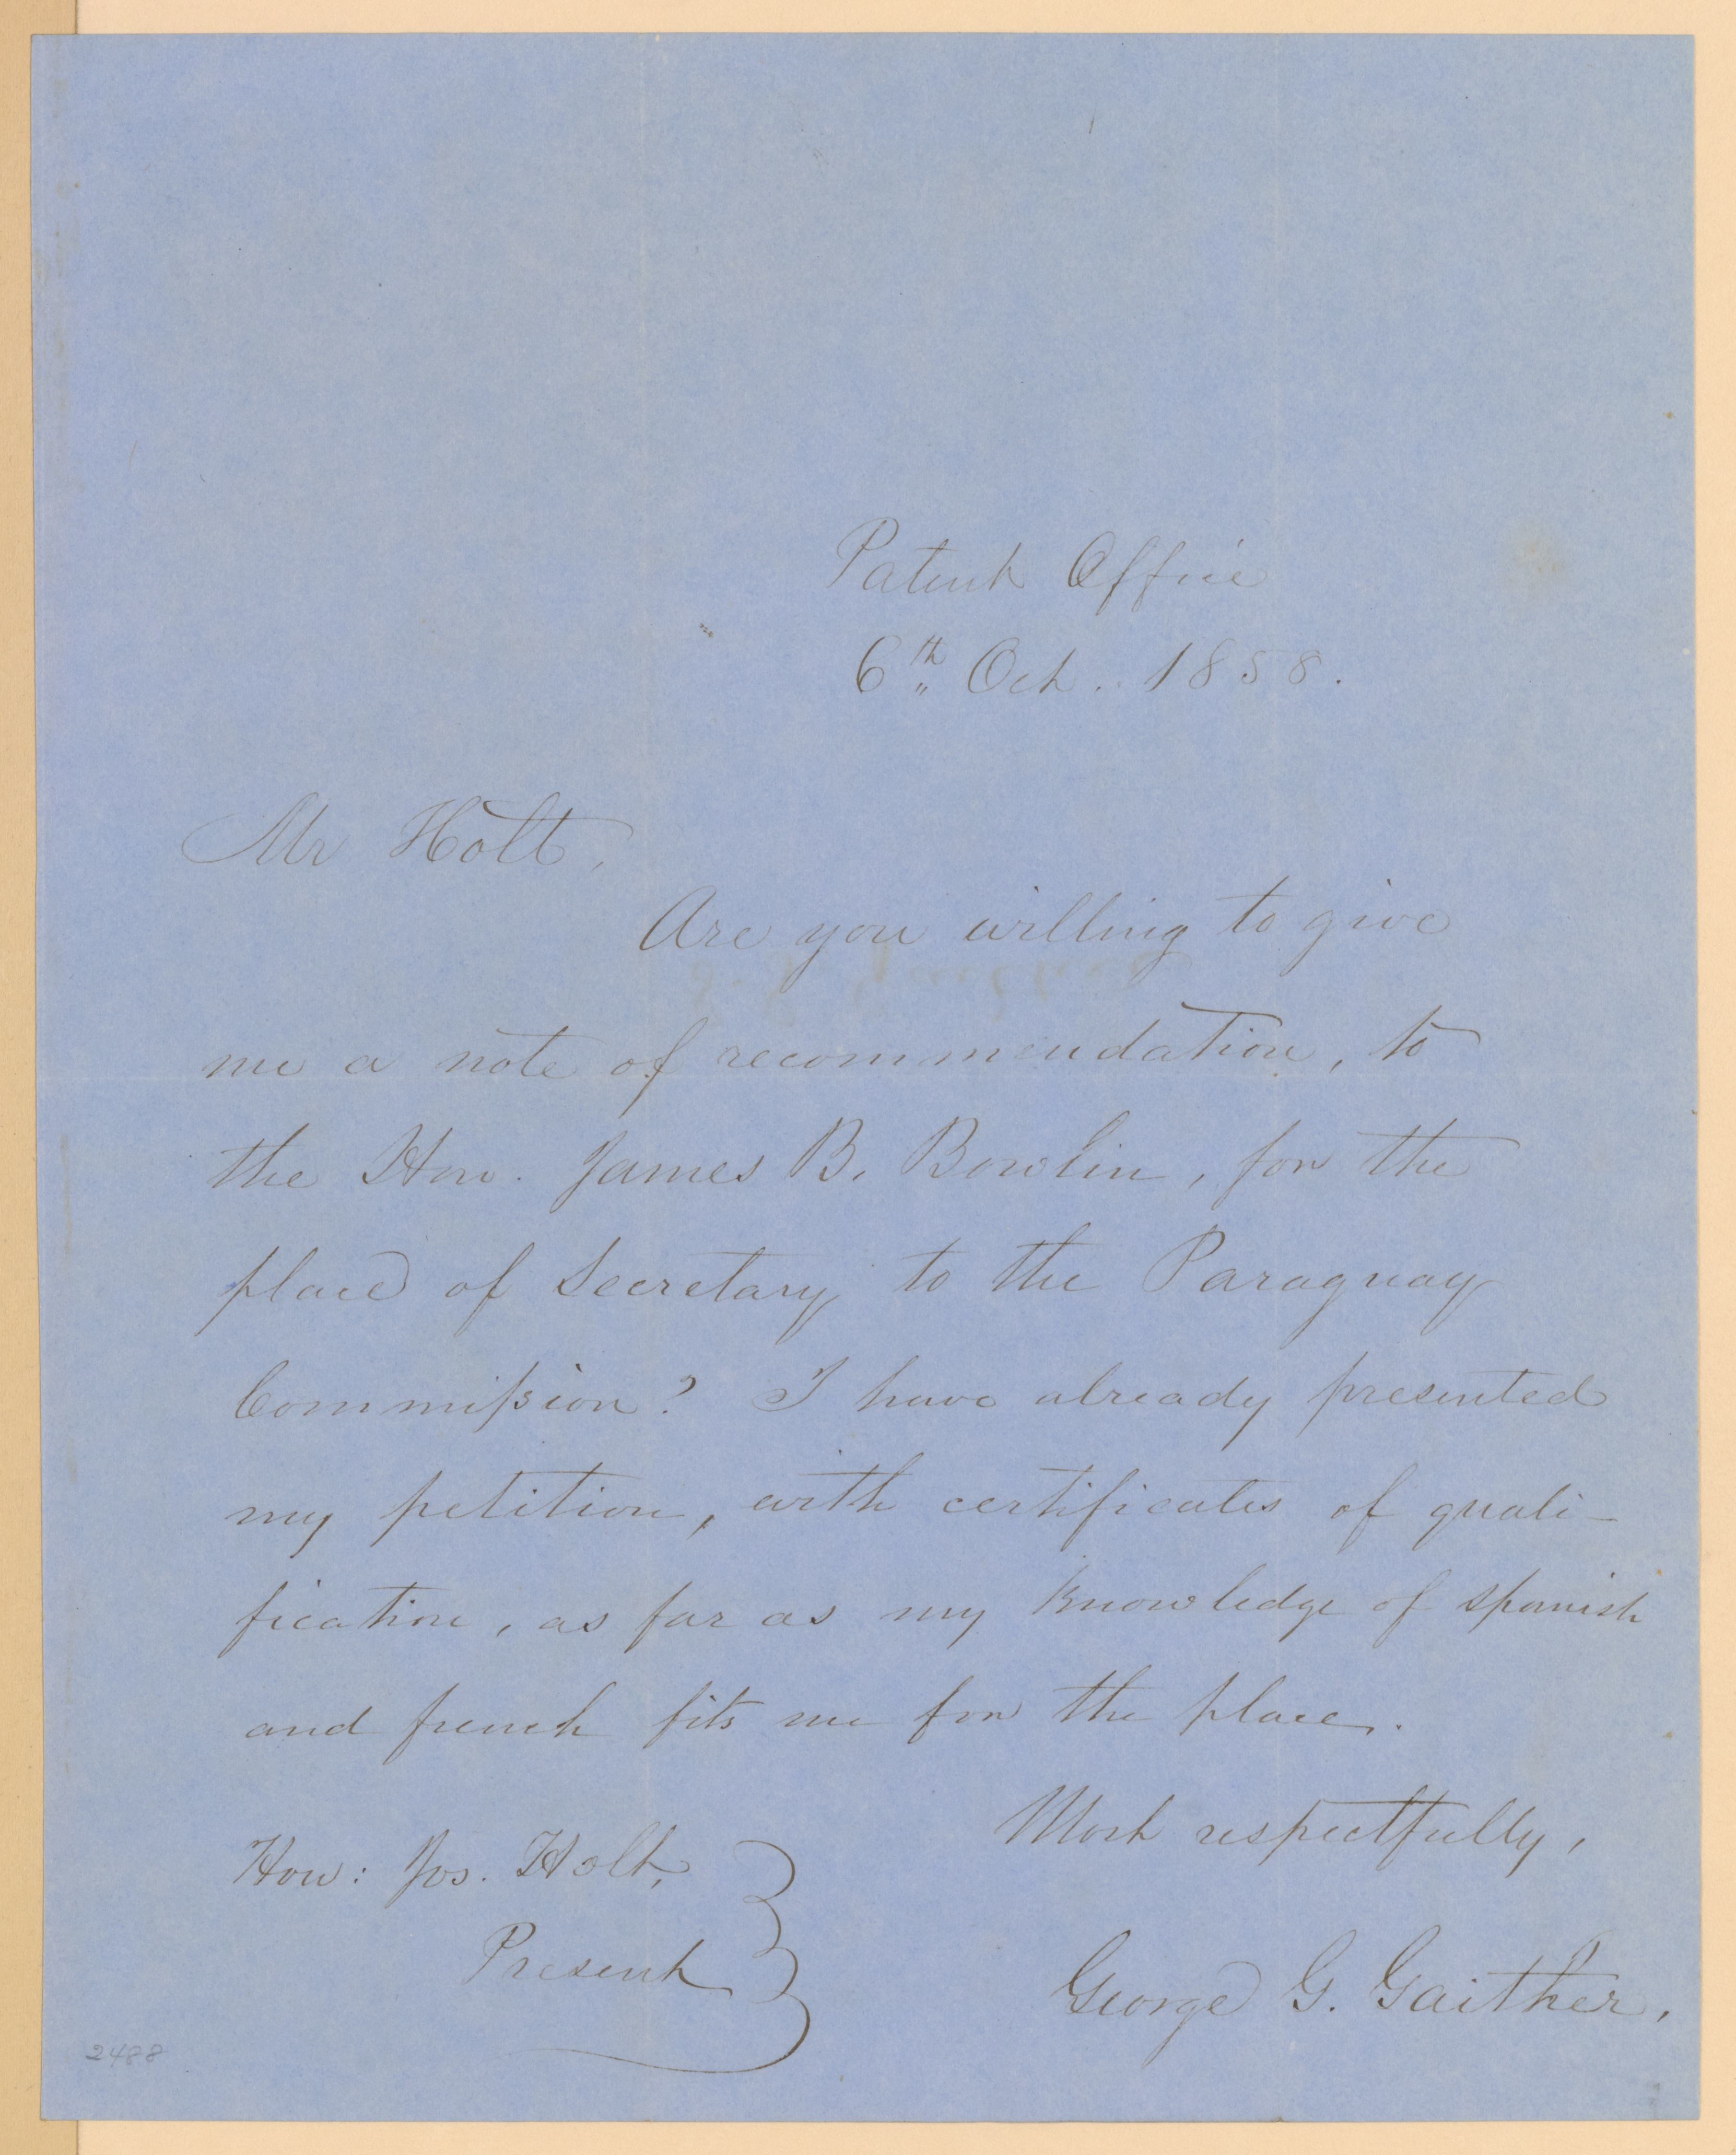 Patent Office
6th Oct. 1858.
Mr Holt,
Are you willing to give
me a note of recommendation, to
the Hon. James B. Bowlin, for the
place of Secretary to the Paraguay
Commission? I have already presented
my petition, with certificates of quali-
fication, as far as my knowledge of spanish
and french fits me for the place.
Most respectfully,
George G. Gaither.
Hon: Jos. Holt,
Present
2488